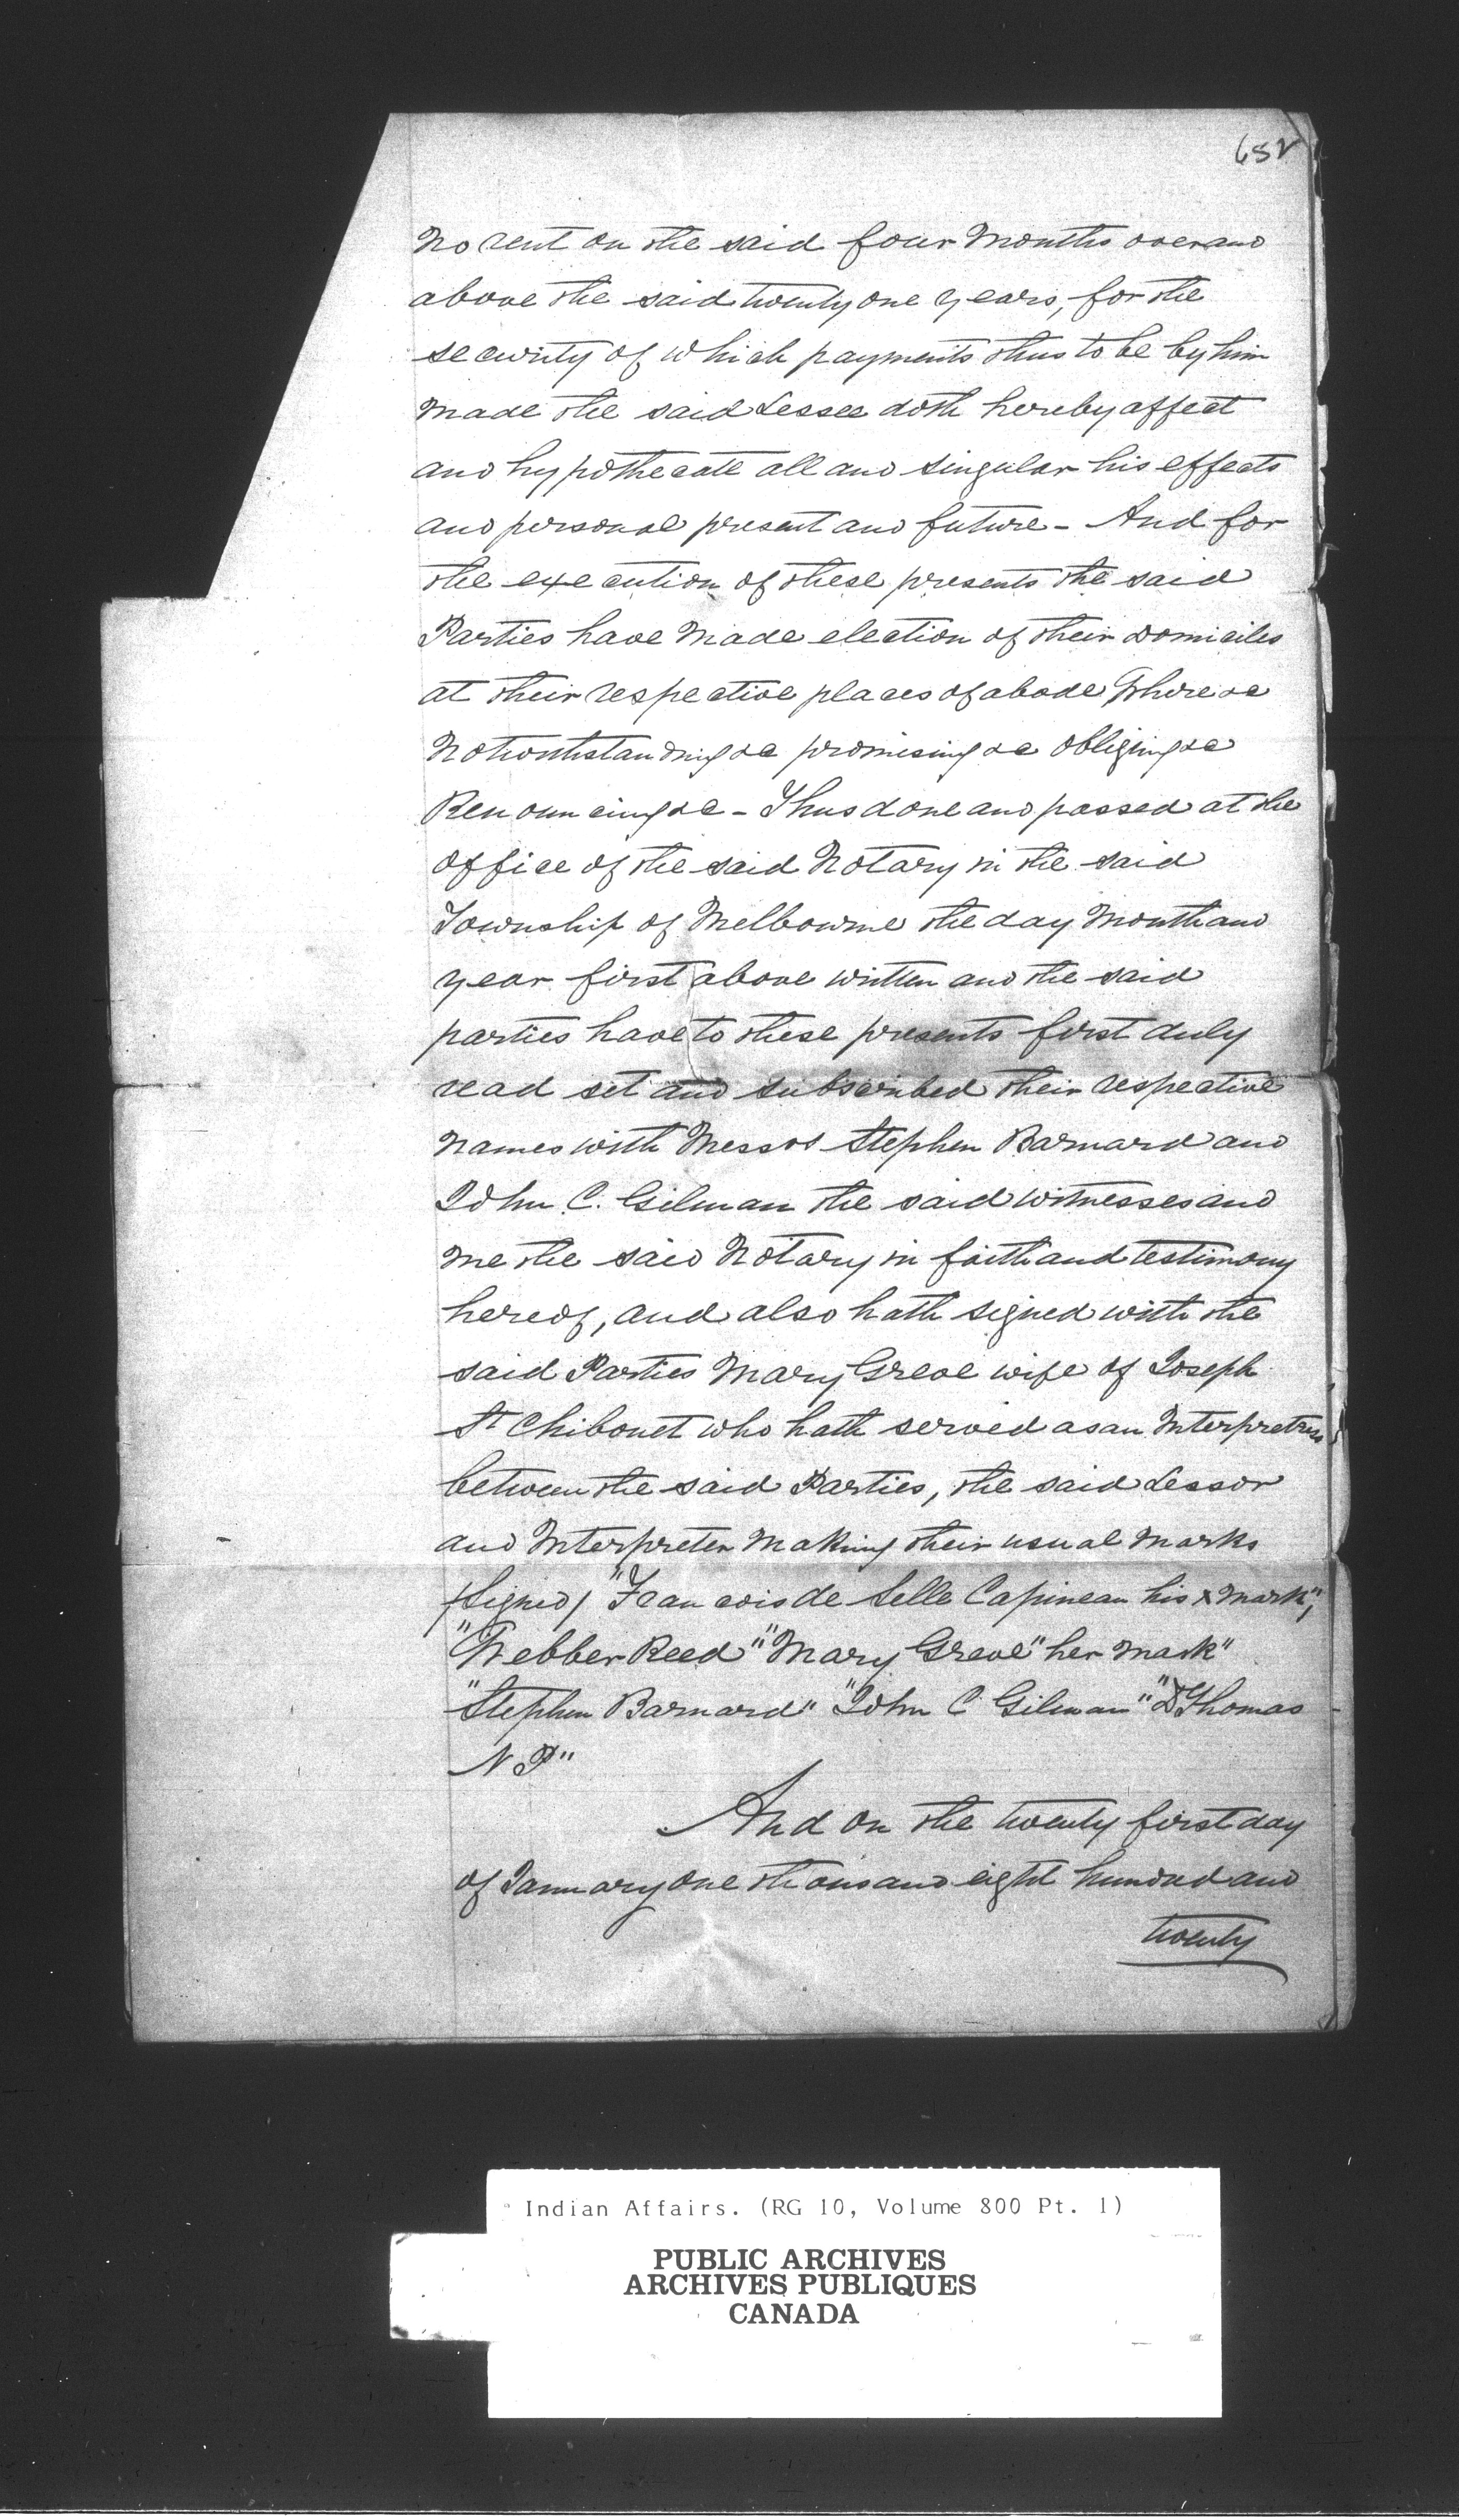 652
No rent on the said four Months over and
above the said twenty one years, for the
security of which payments thus to be by him
made the said Lessee doth hereby affect
and hypothecate all and singular his effects
and personal present and future - And for
the execution of these presents the said
Parties have made election of their domiciles
at their respective places of abode Where &c
Notwithstanding &c promising &c obliging &c
Renouncing &c - Thus done and passed at the
office of the said Notary in the said
Township of Melbourne the day Month and
year first above written and the said
parties have to these presents first duly
read set and subscribed their respective
names with Messrs Stephen Barnard and
John C. Gilman the said witnesses and
me the said Notary in faith and testimony
hereof, and also hath signed with the
said Parties Mary Greve wife of Joseph
St Chibonet who hath served as an Interpretress
between the said Parties, the said Lessor
and Interpreter Making their usual Marks
(Signed) "Francois de Selle Capineau his x mark",
"Webber Reed" "Mary Greve" her mark"
"Stephen Barnard" "John C Gilman" "D Thomas
N P"
And on the twenty first day
of January one thousand eight hundred and
twenty
Indian Affairs. (RG 10, Volume 800 Pt. 1)
PUBLIC ARCHIVES
ARCHIVES PUBLIQUES
CANADA